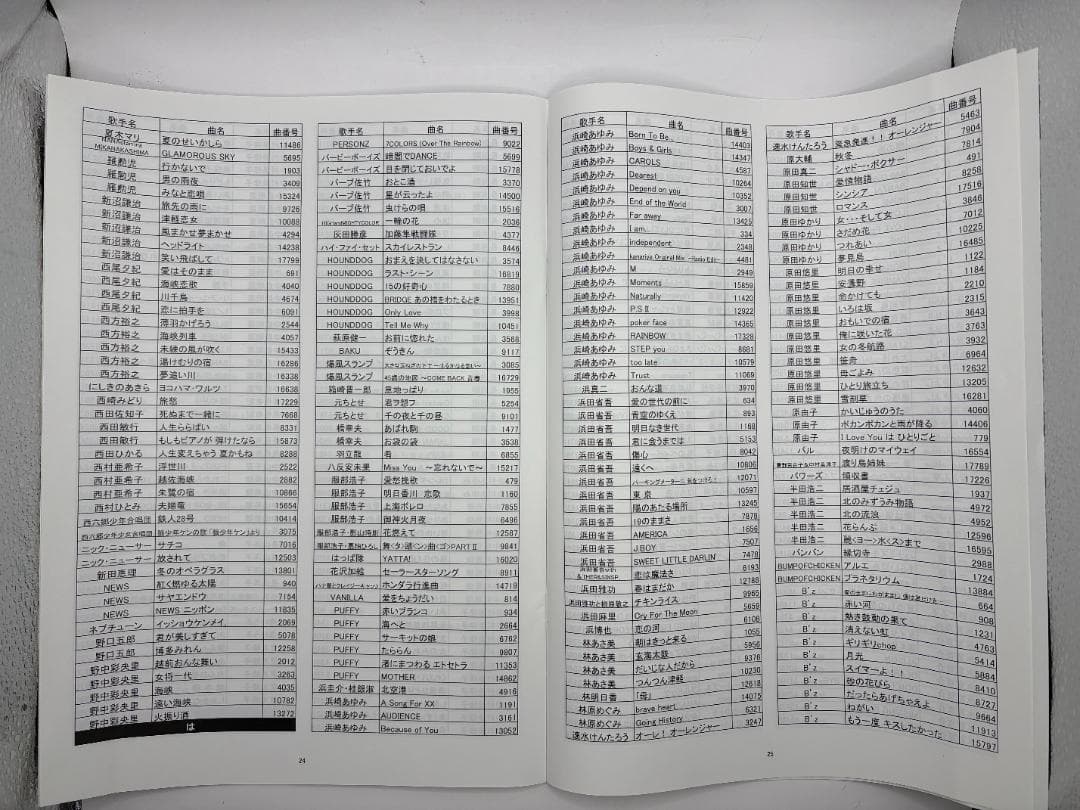 歌手名 曲名 曲番号
夏木マリ 夏のせいかしら 11486
MIKANAKASHIMA GLAMOROUS SKY 5695
雅勲児 行かないで 1903
雅勲児 男の雨夜 3409
雅勲児 みなと恋唄 15324
新沼謙治 旅先の雨に 9726
新沼謙治 津軽恋女 10088
新沼謙治 風まかせ夢まかせ 4294
新沼謙治 ヘッドライト 14238
新沼謙治 笑い飛ばして 17799
西尾夕紀 愛はそのまま 691
西尾夕紀 海峡恋歌 4040
西尾夕紀 川千鳥 4674
西尾夕紀 恋に拍手を 6091
西方裕之 薄羽かげろう 2544
西方裕之 海峡列車 4057
西方裕之 未練の風が吹く 15433
西方裕之 湯けむりの宿 16296
西方裕之 夢追い川 16336
にしきのあきら ヨコハマ・ワルツ 16638
西崎みどり 旅愁 17229
西田佐知子 死ぬまで一緒に 7668
西田敏行 人生ららばい 8331
西田敏行 もしもピアノが 弾けたなら 15873
西田ひかる 人生変えちゃう 夏かもね 8288
西村亜希子 浮世川 2522
西村亜希子 越佐海峡 2682
西村亜希子 朱鷺の宿 10666
西村ひとみ 夫婦竜 15654
西六郷少年合唱団 鉄人28号 10414
3075
ニック・ニューサー サチコ 7016
ニック・ニューサー 放されて 12503
新田恵理 冬のオペラグラス 13801
NEWS 紅く燃ゆる太陽 940
NEWS サヤエンドウ 7154
NEWS NEWS ニッポン 11835
ネプチューン イッショウケンメイ 2069
野口五郎 君が美しすぎて 5078
野口五郎 博多みれん 12258
野中彩央里 越前おんな舞い 2012
野中彩央里 女将一代 3263
野中彩央里 海峡 4035
野中彩央里 遠い海峡 10782
野中彩央里 火振り酒 13272
は
24
歌手名 曲名 曲番号
PERSONZ 7COLORS (Over The Rainbow) 9022
バービーボーイズ 暗闇でDANCE 5699
バービーボーイズ 目を閉じておいでよ 15778
バーブ佐竹 おとこ酒 3370
バーブ佐竹 星が云ったよ 14500
バーブ佐竹 虫けらの唄 15516
一輪の花 2036
灰田勝彦 加藤隼戦闘隊 4377
ハイ・ファイ・セット スカイレストラン 8446
HOUNDDOG おまえを決してはなさない 3574
HOUNDDOG ラスト・シーン 16819
HOUNDDOG 15の好奇心 7880
HOUNDDOG BRIDGE あの橋をわたるとき 13951
HOUNDDOG Only Love 3998
HOUNDDOG Tell Me Why 10451
萩原健一 お前に惚れた 3568
BAKU ぞうきん 9117
爆風スランプ 3085
爆風スランプ 45歳の地図 ～COME BACK 青春 16729
箱崎晋一郎 意地っぱり 1955
元ちとせ 君ヲ想フ 5254
元ちとせ 千の夜と千の昼 9101
橋幸夫 あばれ駒 1477
橋幸夫 お袋の袋 3638
羽立龍 肴 6855
八反安未果 Miss You ～忘れないで～ 15217
服部浩子 愛愁挽歌 479
服部浩子 明日香川 恋歌 1160
服部浩子 上海ポレロ 7855
服部浩子 御神火月夜 6496
服部浩子・影山時則 花燃えて 12587
9841
はっぱ隊 YATTA! 16020
花沢加絵 セーラースターソング 8911
ハナ肇とクレイジーキャッツ ホンダラ行進曲 14718
VANILLA 愛をちょうだい 814
PUFFY 赤いブランコ 934
PUFFY 海へと 2664
PUFFY サーキットの娘 6762
PUFFY たららん 9807
PUFFY 渚にまつわる エトセトラ 11353
PUFFY MOTHER 14862
浜圭介・桂銀淑 北空港 4916
浜崎あゆみ A Song For XX 1191
浜崎あゆみ AUDIENCE 3161
浜崎あゆみ Because of You 13052
歌手名 曲名 曲番号
浜崎あゆみ Born To Be... 14403
浜崎あゆみ Boys & Girls 14347
浜崎あゆみ CAROLS 4587
浜崎あゆみ Dearest 10264
浜崎あゆみ Depend on you 10352
浜崎あゆみ End of the World 3007
浜崎あゆみ Far away 13425
浜崎あゆみ I am... 334
浜崎あゆみ independent 2348
浜崎あゆみ kanariya Original Mix ~Radio Edit~ 4481
浜崎あゆみ M 2949
浜崎あゆみ Moments 15859
浜崎あゆみ Naturally 11420
浜崎あゆみ P.S II 12922
浜崎あゆみ poker face 14365
浜崎あゆみ RAINBOW 17328
浜崎あゆみ STEP you 8681
浜崎あゆみ too late 10579
浜崎あゆみ Trust 11069
浜真二 おんな道 3970
浜田省吾 愛の世代の前に 634
浜田省吾 青空のゆくえ 893
浜田省吾 明日なき世代 1168
浜田省吾 君に会うまでは 5153
浜田省吾 傷心 8042
浜田省吾 遠くへ 10806
浜田省吾 パーキングメーターに 気をつけろ! 12071
浜田省吾 東京 10597
浜田省吾 陽のあたる場所 13245
浜田省吾 19のままさ 7878
浜田省吾 AMERICA 1656
浜田省吾 J.BOY 7507
浜田省吾 SWEET LITTLE DARLIN' 7478
恋は魔法さ 6193
浜田雅功 春はまだか 12188
浜田雅功と槇原敬之 チキンライス 9965
浜田麻里 Cry For The Moon 5659
浜博也 恋の河 6106
林あさ美 朝はきっと来る 1055
林あさ美 玄海太鼓 5956
林あさ美 だいじな人だから 9376
林あさ美 つんつん津軽 10230
林明日香 「母」 12618
林原めぐみ brave heart 14075
林原めぐみ Going History 6321
速水けんたろう オーレ! オーレンジャー 3247
25
歌手名 曲名 曲番号
速水けんたろう 緊急発進!! オーレンジャー 5463
原大輔 秋冬 7904
原田真二 シャドー・ボクサー 7814
原田知世 愛情物語 491
原田知世 シンシア 8258
原田知世 ロマンス 17516
原田ゆかり 女・・そして女 3846
原田ゆかり さだめ花 7012
原田ゆかり つれあい 10225
原田ゆかり 夢見鳥 16485
原田悠里 明日の幸せ 1122
原田悠里 安曇野 1184
原田悠里 命かけても 2210
原田悠里 いろは坂 2315
原田悠里 おもいでの宿 3643
原田悠里 俺に咲いた花 3763
原田悠里 女の冬航路 3932
原田悠里 笹舟 6964
原田悠里 母ごよみ 12632
原田悠里 ひとり旅立ち 13205
原田悠里 雪割草 16281
原由子 かいじゅうのうた 4060
原由子 ポカンポカンと雨が降る 14406
原由子 I Love You は ひとりごと 779
バル 夜明けのマイウェイ 16554
渡り鳥姉妹 17789
パワーズ 領収書 17226
半田浩二 居酒屋チェジュ 1937
半田浩二 北のみずうみ物語 4972
半田浩二 北の流氷 4952
半田浩二 花らんぷ 12596
半田浩二 酔<ヨー>水<ス>まで 16595
バンバン 縁切寺 2988
BUMPOFCHICKEN アルエ 1724
BUMPOFCHICKEN プラネタリウム 13884
B'z 664
B'z 赤い河 908
B'z 熱き鼓動の果て 1231
B'z 消えない虹 4763
B'z ギリギリchop 5414
B'z 月光 5884
B'z スイマーよ!! 8410
B'z 砂の花びら 8727
B'z だったらあげちゃえよ 9664
B'z ねがい 11913
B'z もう一度 キスしたかった 15797